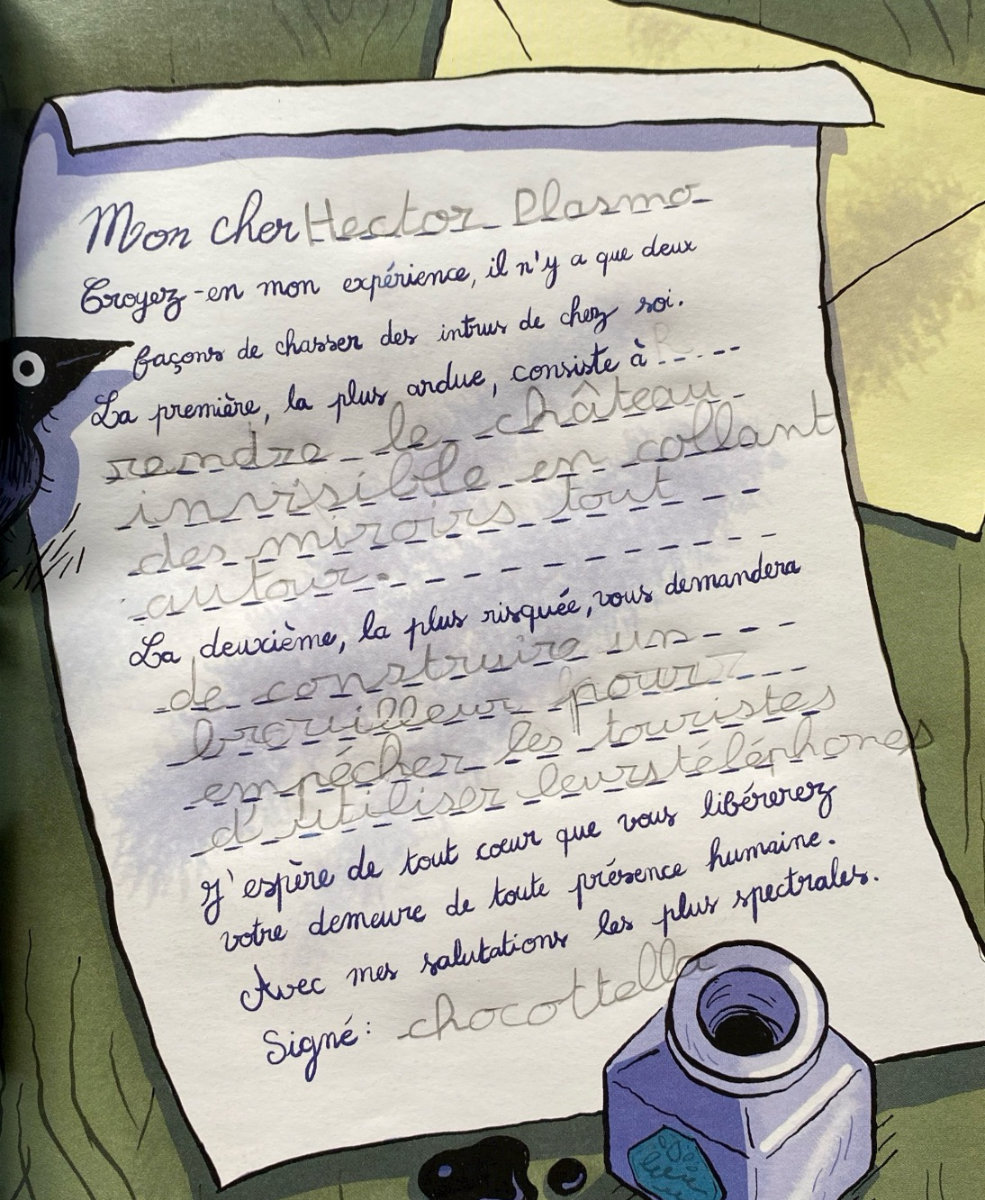 Mon cher Hector Plasmo
Croyez-en mon expérience, il n'y a que deux
façons de chasser des intrus de chez soi.
La première, la plus ardue, consiste à
rendre le château
invisible en collant
des miroirs tout
autour.
La deuxième, la plus risquée, vous demandera
de construire un
brouilleur pour
empécher les touristes
d'utiliser leurs téléphones
J'espère de tout cœur que vous libérerez
votre demeure de toute présence humaine.
Avec mes salutations les plus spectrales.
Signé: chocottella